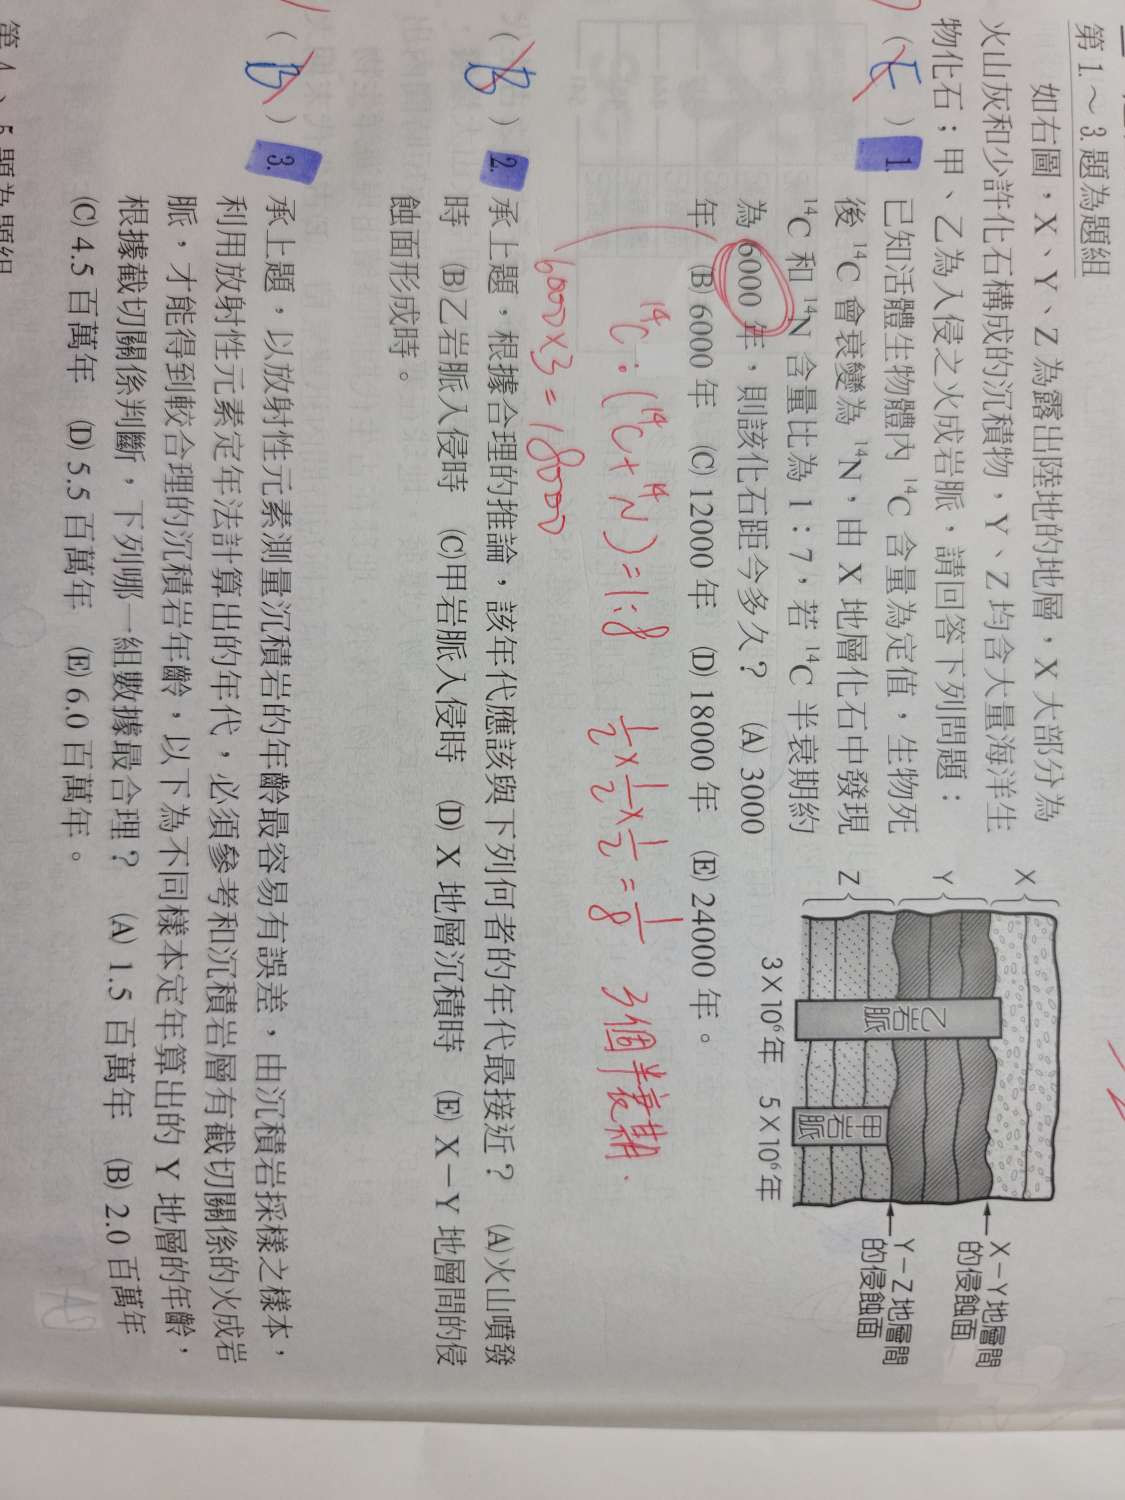 第 1.～ 3. 題為題組
如右圖，X、Y、Z 為露出陸地的地層，X 大部分為
火山灰和少許化石構成的沉積物，Y、Z 均含大量海洋生
物化石；甲、乙為入侵之火成岩脈，請回答下列問題：
( E ) 1. 已知活體生物體內 ¹⁴C 含量為定值，生物死
後 ¹⁴C 會衰變為 ¹⁴N，由 X 地層化石中發現
¹⁴C 和 ¹⁴N 含量比為 1：7，若 ¹⁴C 半衰期約
為 6000 年，則該化石距今多久？ (A) 3000
年 (B) 6000 年 (C) 12000 年 (D) 18000 年 (E) 24000 年。
X
Y
Z
乙岩脈
甲岩脈
3×10⁶年 5×10⁶年
X－Y 地層間
的侵蝕面
Y－Z 地層間
的侵蝕面
¹⁴C：(¹⁴C+¹⁴N)=1:8 ½×½×½=⅛ 3個半衰期.
6000×3=18000
( B ) 2. 承上題，根據合理的推論，該年代應該與下列何者的年代最接近？ (A)火山噴發
時 (B)乙岩脈入侵時 (C)甲岩脈入侵時 (D) X 地層沉積時 (E) X－Y 地層間的侵
蝕面形成時。
( B ) 3. 承上題，以放射性元素測量沉積岩的年齡最容易有誤差，由沉積岩採樣之樣本，
利用放射性元素定年法計算出的年代，必須參考和沉積岩層有截切關係的火成岩
脈，才能得到較合理的沉積岩年齡，以下為不同樣本定年算出的 Y 地層的年齡，
根據截切關係判斷，下列哪一組數據最合理？ (A) 1.5 百萬年 (B) 2.0 百萬年
(C) 4.5 百萬年 (D) 5.5 百萬年 (E) 6.0 百萬年。
第 4.、5. 題為題組